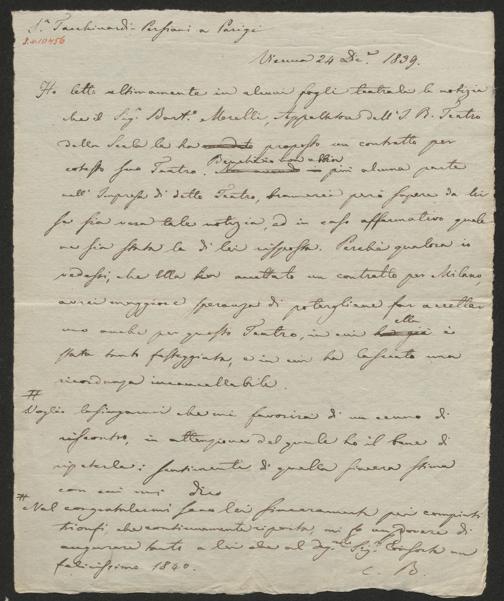 Sra Tacchinardi-Persiani a Parigi
Vienna 24 Dic.e 1839.
Ho letto ultimamente in alcuni fogli teatrali la notizia
che il Sigr Bart.o Merelli, Appaltatore dell'I. R. Teatro
della Scala le ha proposto un contratto per
cotesto suo Teatro. Benchè io non abbia
più alcuna parte
nell'Impresa di detto Teatro, bramerei però sapere da lei
se sia vera tale notizia, ed in caso affermativo quale
ne sia stata la di lei risposta. Perchè qualora io
vedessi, che Ella ha accettato un contratto per Milano,
avrei maggiore speranza di potergliene far accettar
uno anche per questo Teatro, in cui ella è
stata tanto festeggiata, e in cui ha lasciato una
ricordanza incancellabile.
# Voglio lusingarmi che mi favorirà di un cenno di
riscontro, in attenzione del quale ho il bene di
ripeterle i sentimenti di quella sincera stima
con cui mi dico
# Nel congratularmi seco lei sinceramente pei
trionfi, che continuamente riporta, mi fo un dovere di
augurare tanto a lei che al Sigr Consorte un
felicissimo 1840.
C. B.